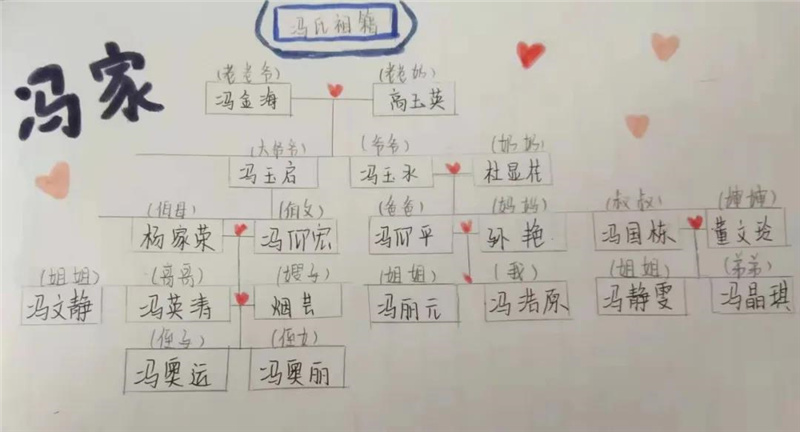 冯氏祖籍
冯家
(老爷爷) (老奶奶)
冯金海 高玉英
(大爷爷) (爷爷) (奶奶)
冯玉启 冯玉水 杜显花
(伯母) (伯父) (爸爸) (妈妈) (叔叔) (婶婶)
杨家荣 冯仰宏 冯仰平 孙艳 冯国栋 董文玲
(姐姐) (哥哥) (嫂子) (姐姐) (我) (姐姐) (弟弟)
冯文静 冯英涛 烟芸 冯丽元 冯浩原 冯静雯 冯晶琪
(侄子) (侄女)
冯奥运 冯奥丽